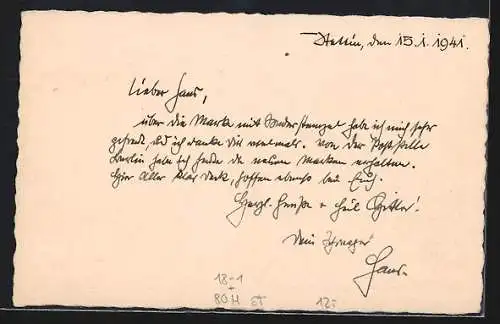 Stettin, den 15.1.1941.
Lieber Hans,
über die Marke mit Sonderstempel habe ich mich sehr
gefreut und ich danke Dir vielmals. Von der Poststelle
Berlin habe ich heute die neuen Marken erhalten.
Hier alles, hoffen ebenso bei Euch.
Herzl. Grüße + Heil Hitler!
Dein Schwager
Hans.
18-1
80 M ST 12,-